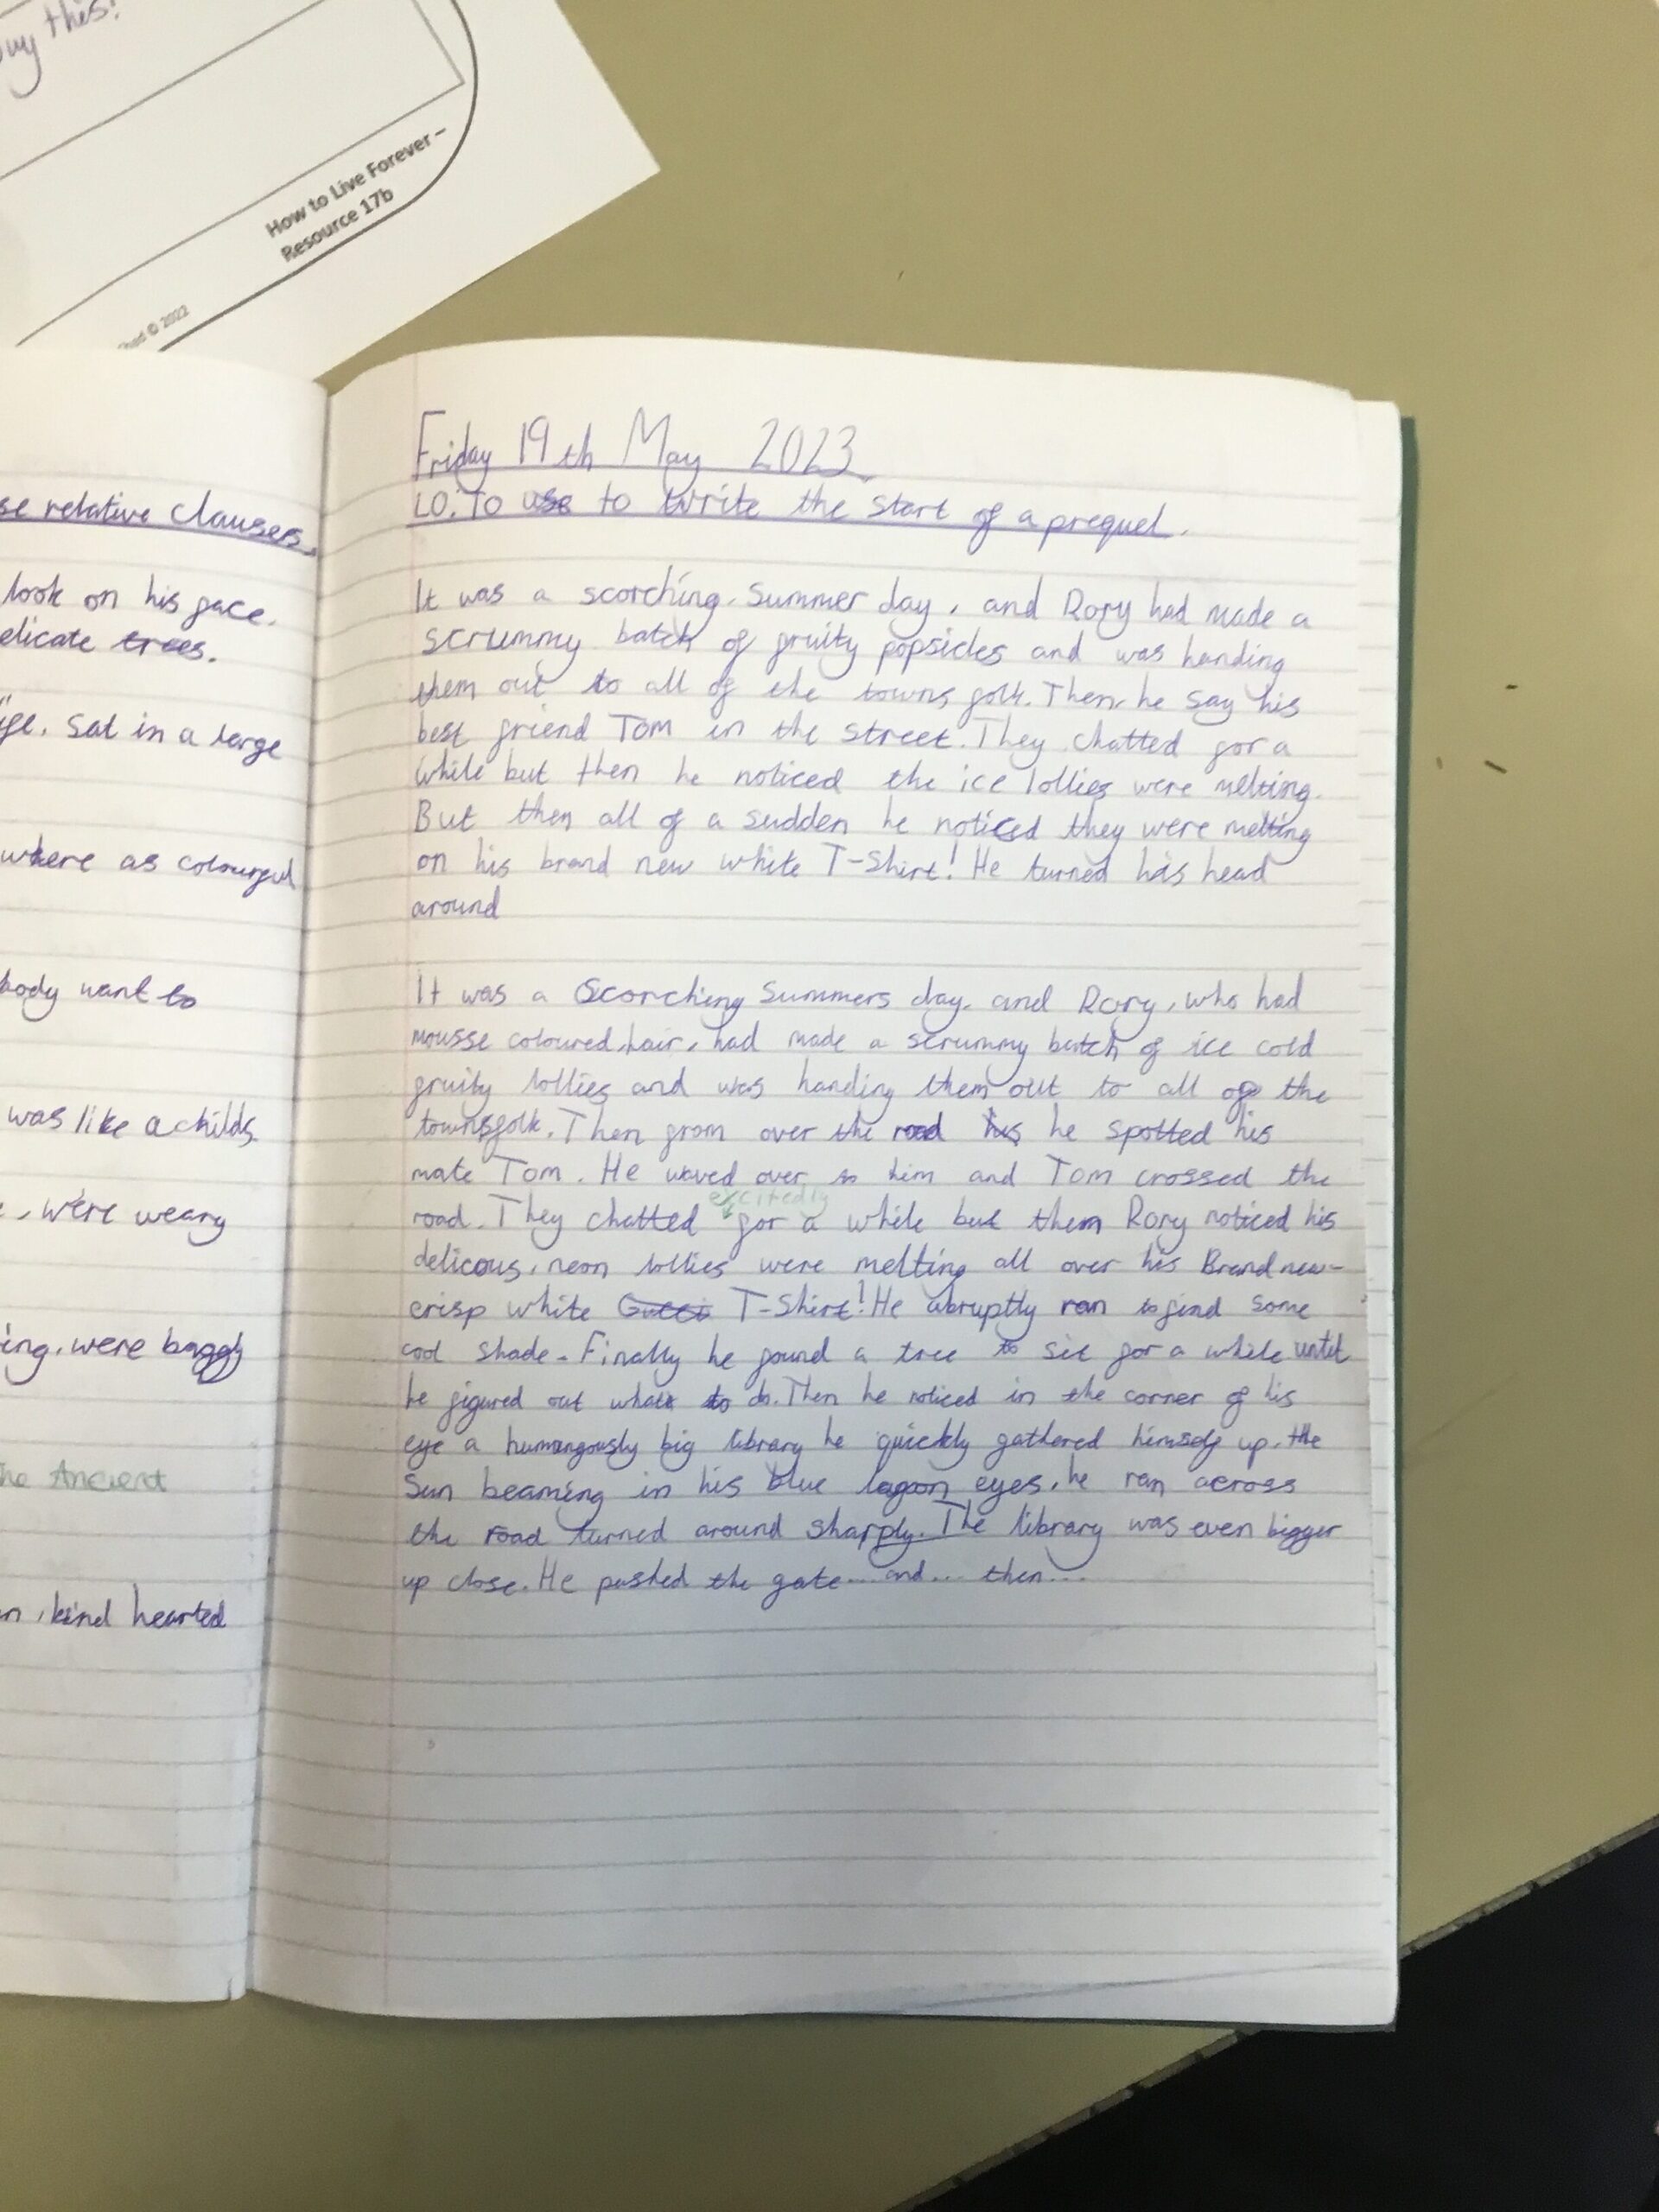 uy this!
How to Live Forever –
Resource 17b
hed © 2022
se relative clauses.
look on his face.
elicate trees.
ife. Sat in a large
where as colourful
body want to
was like a childs.
e, were weary
ing, were baggy
he Ancient
n, kind hearted
Friday 19th May 2023
LO: To use to write the start of a prequel.
It was a scorching Summer day, and Rory had made a
scrummy batch of fruity popsicles and was handing
them out to all of the towns folk. Then he say his
best friend Tom in the street. They chatted for a
while but then he noticed the ice lollies were melting.
But then all of a sudden he noticed they were melting
on his brand new white T-Shirt! He turned his head
around
It was a Scorching Summers day, and Rory, who had
mousse coloured hair, had made a scrummy batch of ice cold
fruity lollies and was handing them out to all of the
townsfolk. Then from over the road his he spotted his
mate Tom. He waved over to him and Tom crossed the
excitedly
road. They chatted for a while but then Rory noticed his
delicous, neon lollies were melting all over his Brand new-
crisp white Gucci T-Shirt! He abruptly ran to find some
cool shade. Finally he found a tree to sit for a while until
he figured out what to do. Then he noticed in the corner of his
eye a humungously big library he quickly gathered himself up, the
Sun beaming in his blue lagoon eyes, he ran across
the road turned around sharply. The library was even bigger
up close. He pushed the gate... and... then...